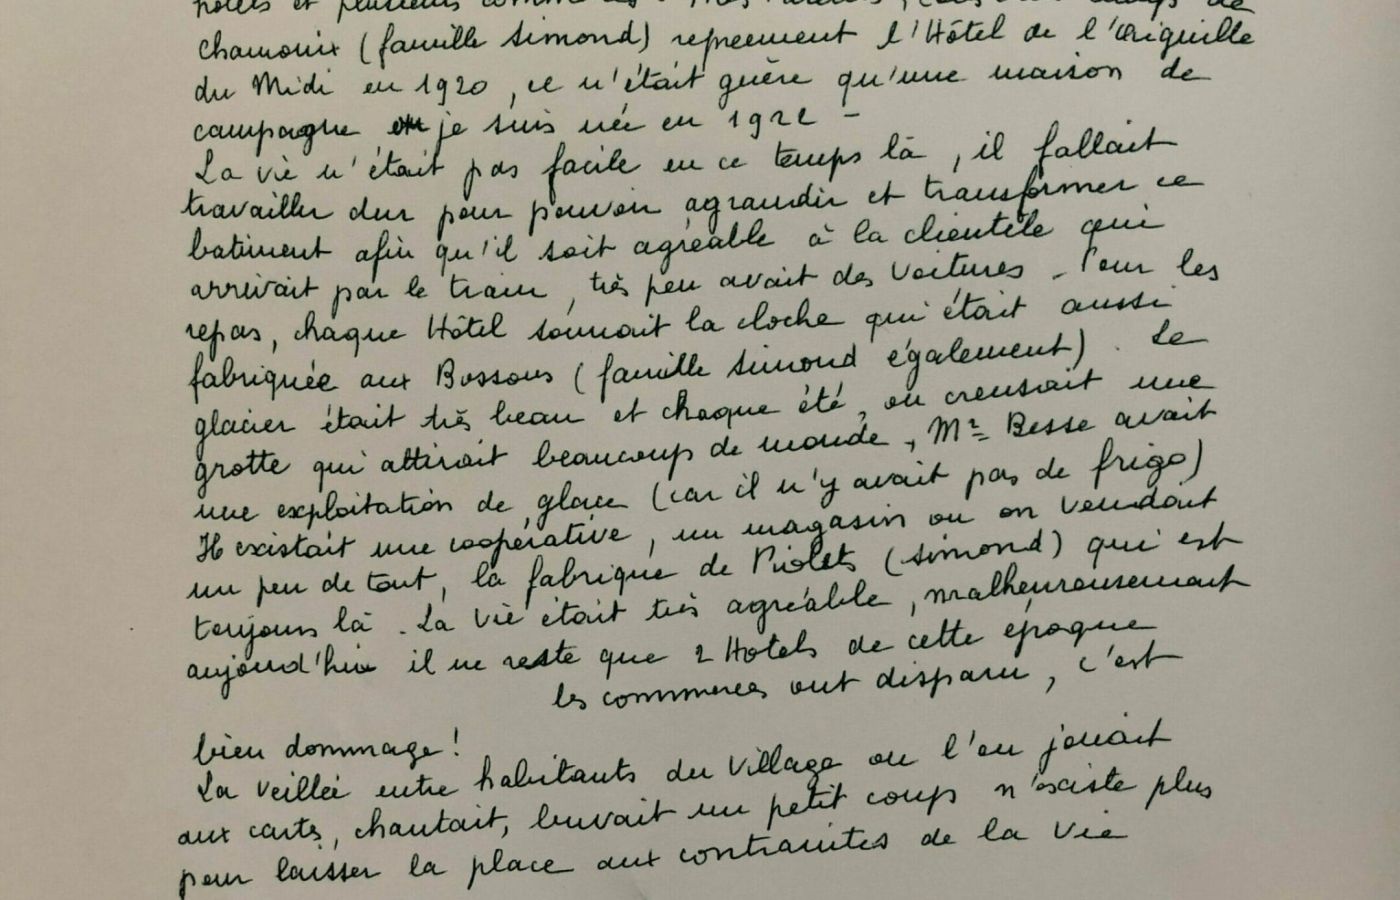 hôtels et plusieurs
chamonix (famille Simond) reprennent l'Hôtel de l'aiguille
du Midi en 1920, ce n'était guère qu'une maison de
campagne je suis née en 1922 -
La vie n'était pas facile en ce temps là, il fallait
travailler dur pour pouvoir agrandir et transformer ce
batiment afin qu'il soit agréable à la clientèle qui
arrivait par le train, très peu avait des voitures - Pour les
repas, chaque Hôtel sonnait la cloche qui était aussi
fabriquée aux Bossons (famille Simond également). Le
glacier était très beau et chaque été, on creusait une
grotte qui attirait beaucoup de monde, Mr Besse avait
une exploitation de glace (car il n'y avait pas de frigo)
Il existait une coopérative, un magasin ou on vendait
un peu de tout, la fabrique de Piolets (Simond) qui est
toujours là. La vie était très agréable, malheureusement
aujourd'hui il ne reste que 2 Hotels de cette époque
les commerces ont disparu, c'est
bien dommage!
La veillée entre habitants du Village ou l'on jouait
aux cartes, chantait, buvait un petit coup n'existe plus
pour laisser la place aux contraintes de la vie